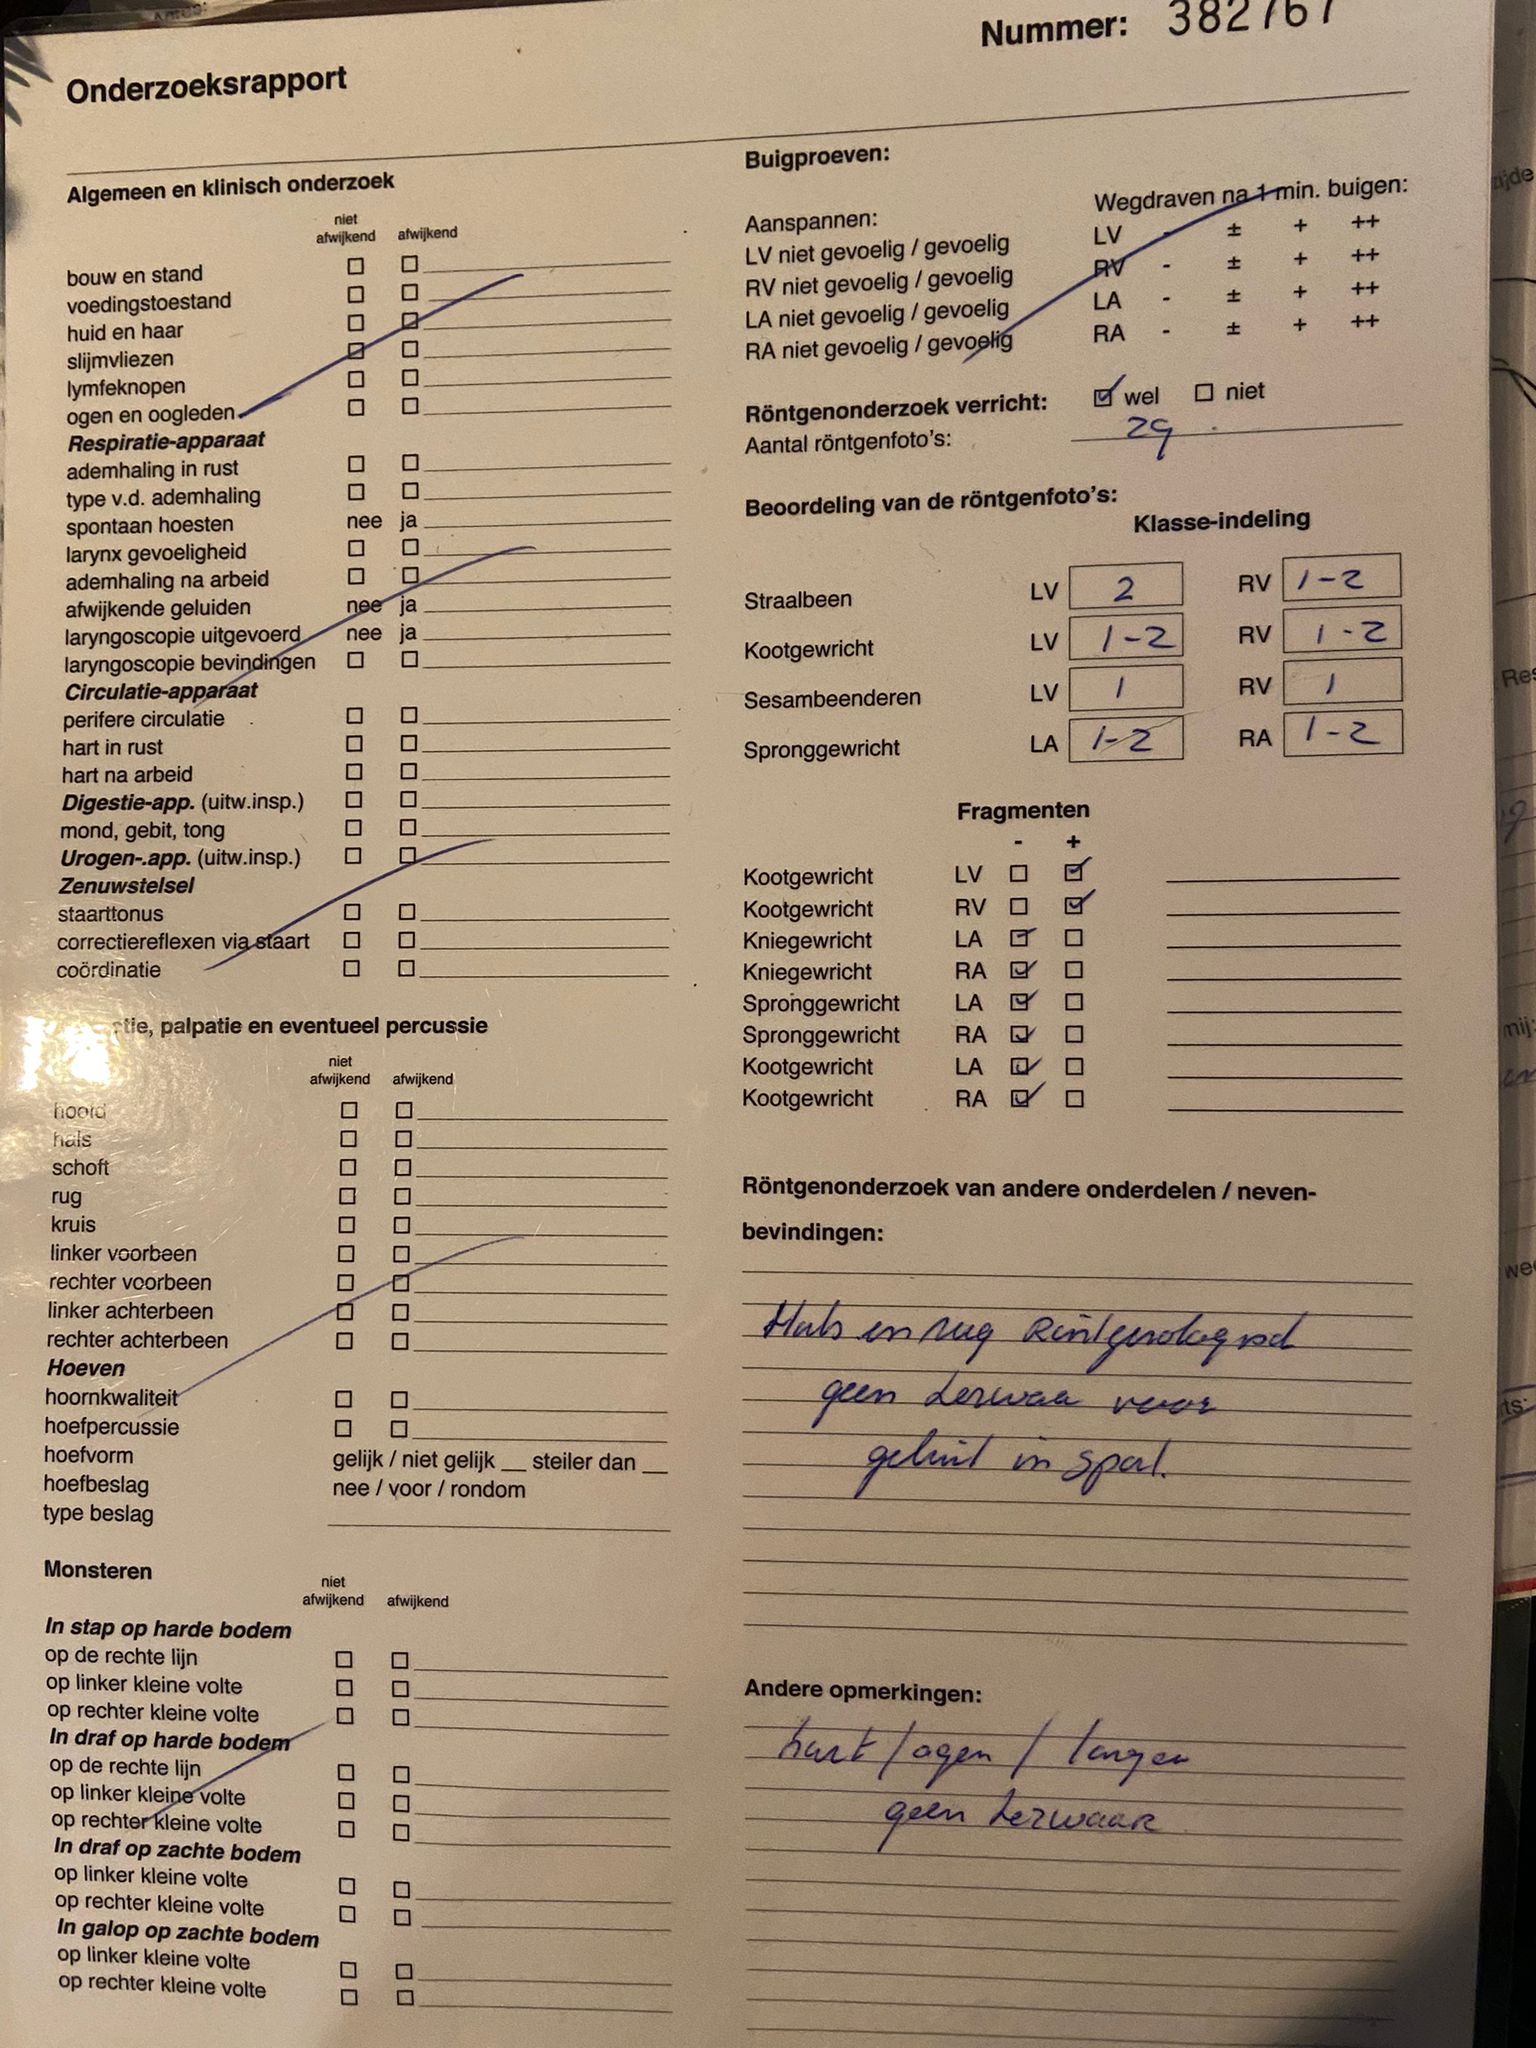 Nummer: 382767
Onderzoeksrapport
Algemeen en klinisch onderzoek
niet afwijkend afwijkend
bouw en stand
voedingstoestand
huid en haar
slijmvliezen
lymfeknopen
ogen en oogleden
Respiratie-apparaat
ademhaling in rust
type v.d. ademhaling
spontaan hoesten nee ja
larynx gevoeligheid
ademhaling na arbeid
afwijkende geluiden nee ja
laryngoscopie uitgevoerd nee ja
laryngoscopie bevindingen
Circulatie-apparaat
perifere circulatie
hart in rust
hart na arbeid
Digestie-app. (uitw.insp.)
mond, gebit, tong
Urogen-.app. (uitw.insp.)
Zenuwstelsel
staarttonus
correctiereflexen via staart
coördinatie
palpatie en eventueel percussie
niet afwijkend afwijkend
hoofd
hals
schoft
rug
kruis
linker voorbeen
rechter voorbeen
linker achterbeen
rechter achterbeen
Hoeven
hoornkwaliteit
hoefpercussie
hoefvorm gelijk / niet gelijk __ steiler dan __
hoefbeslag nee / voor / rondom
type beslag
Monsteren
niet afwijkend afwijkend
In stap op harde bodem
op de rechte lijn
op linker kleine volte
op rechter kleine volte
In draf op harde bodem
op de rechte lijn
op linker kleine volte
op rechter kleine volte
In draf op zachte bodem
op linker kleine volte
op rechter kleine volte
In galop op zachte bodem
op linker kleine volte
op rechter kleine volte
Buigproeven:
Aanspannen: Wegdraven na 1 min. buigen:
LV niet gevoelig / gevoelig LV - ± + ++
RV niet gevoelig / gevoelig RV - ± + ++
LA niet gevoelig / gevoelig LA - ± + ++
RA niet gevoelig / gevoelig RA - ± + ++
Röntgenonderzoek verricht: wel niet
Aantal röntgenfoto's: 29
Beoordeling van de röntgenfoto's:
Klasse-indeling
Straalbeen LV 2 RV 1-2
Kootgewricht LV 1-2 RV 1-2
Sesambeenderen LV 1 RV 1
Spronggewricht LA 1-2 RA 1-2
Fragmenten
- +
Kootgewricht LV
Kootgewricht RV
Kniegewricht LA
Kniegewricht RA
Spronggewricht LA
Spronggewricht RA
Kootgewricht LA
Kootgewricht RA
Röntgenonderzoek van andere onderdelen / neven-
bevindingen:
Hals en rug
geen voor
in sport.
Andere opmerkingen:
hart / ogen / longen
geen